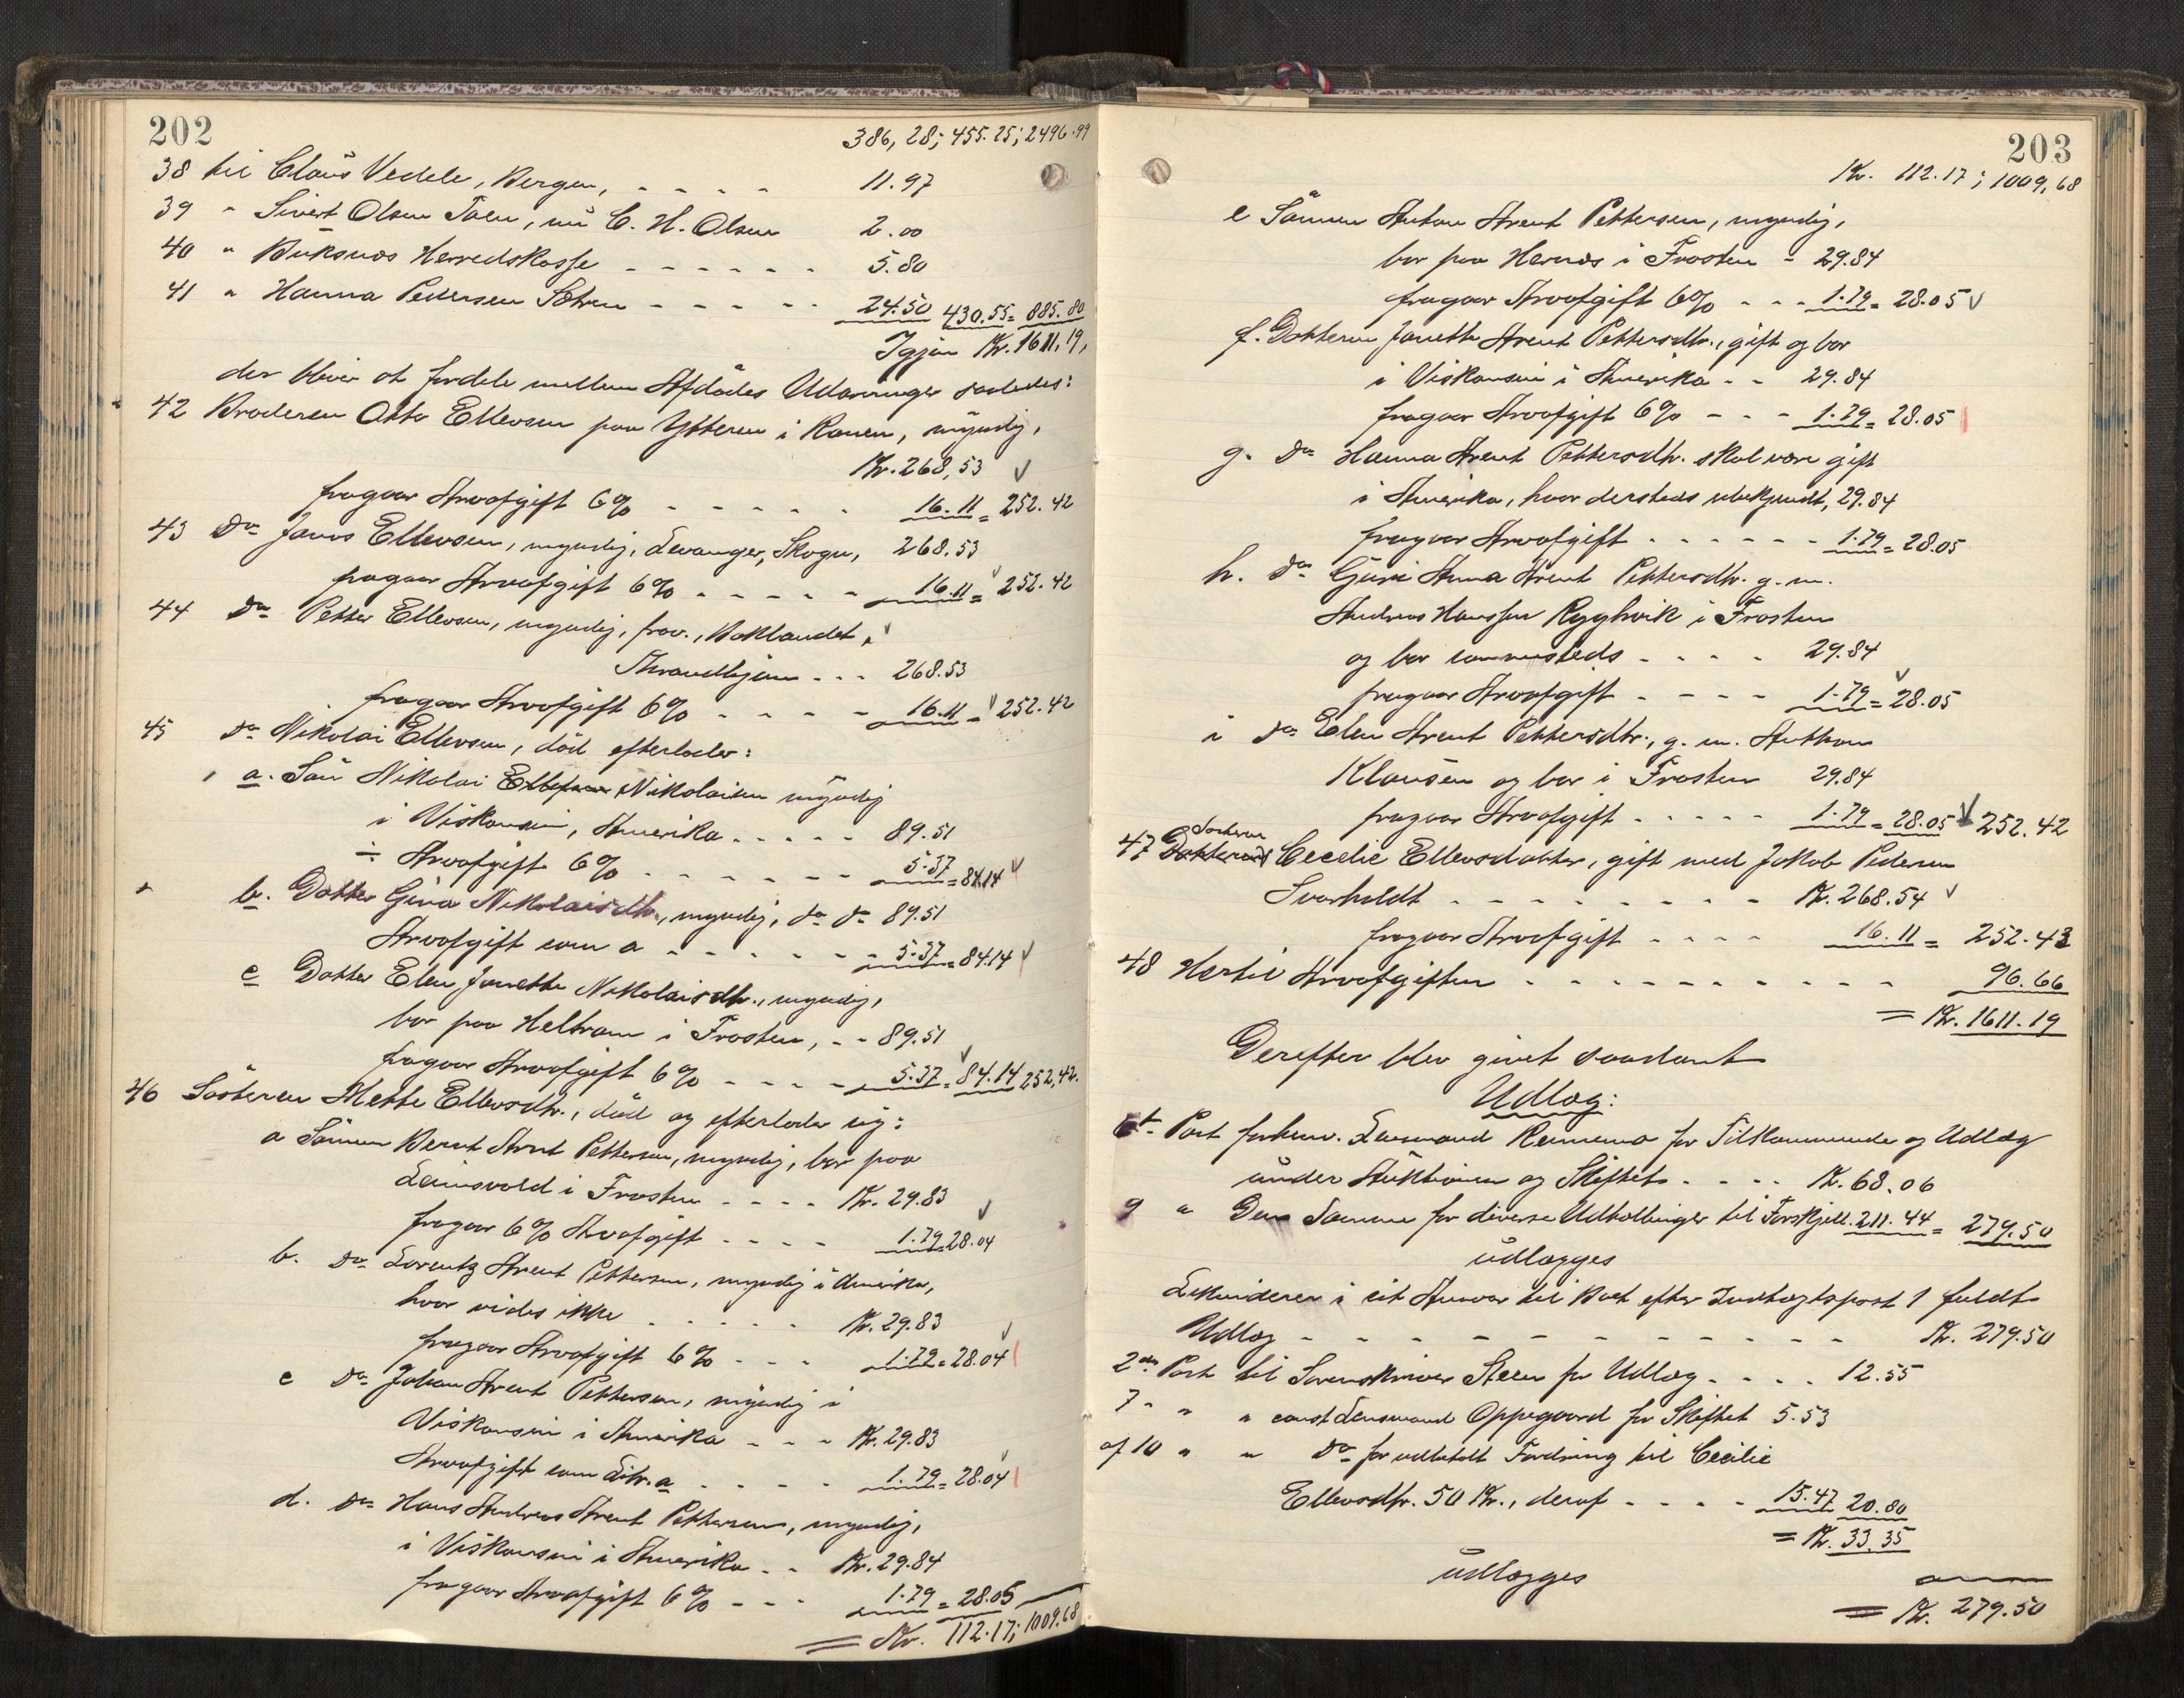 202
386,28; 455.25; 2496.99
38 til Claus Vedele, Bergen, - - - - 11.97
39 " Sivert Olsen Toen, nu C. H. Olsen 2.00
40 " Buksnæs Herredskasse - - - - - - 5.80
41 " Hanna Pedersen Sætran - - - - - 24.50 430.55 = 885.80
Igjen Kr. 1611.19,
der bliver at fordele mellem Afdødes Udarvinger saaledes:
42 Broderen Otto Ellevsen paa Ytteren i Ranen, myndig,
Kr. 268,53
fragaar Arveafgift 6% - - - - - 16.11 = 252.42
43 Do Janos Ellevsen, myndig, Levanger, Skogn, 268.53
fragaar Arveafgift 6% - - - - - 16.11 = 252.42
44 Do Petter Ellevsen, myndig, frav., Baklandet,
Throndhjem - - - 268.53
fragaar Arveafgift 6% - - - - - 16.11 = 252.42
45 Do Nikolai Ellevsen, død efterlader:
a. Søn Nikolai Nikolaisen myndig
i Viskonsin, Amerika - - - - - 89.51
÷ Arveafgift 6% - - - - - - - 5.37 = 84.14
b. Datter Gina Nikolaisdtr., myndig, do do 89.51
Arveafgift som a - - - - - - - 5.37 = 84.14
c Datter Elen Janetta Nikolaisdtr., myndig,
bor paa Heltran i Frosten, - - 89.51
fragaar Arveafgift 6% - - - - 5.37 = 84.14 252,42.
46 Søsteren Mette Ellevsdtr., død og efterlader sig:
a Sønnen Bernt Arnt Pettersen, myndig, bor paa
Leinsvold i Frosten - - - - Kr. 29.83
fragaar 6% Arveafgift - - - - 1.79 28.04
b. Do Lorentz Arent Pettersen, myndig i Amerika,
hvor vides ikke - - - - - Kr. 29.83
fragaar Arveafgift 6% - - - 1.79 = 28.04
c Do Johan Arent Pettersen, myndig i
Viskonsin i Amerika - - - Kr. 29.83
Arveafgift som Litr. a - - - - 1.79 = 28.04
d. Do Hans Andreas Arent Pettersen, myndig,
i Viskonsin i Amerika - - Kr. 29.84
fragaar Arveafgift 6% - - - 1.79 = 28.05
= Kr. 112.17; 1009.68
203
Kr. 112.17; 1009,68
e Sønnen Anton Arent Pettersen, myndig,
bor paa Hernes i Frosten - 29.84
fragaar Arveafgift 6% - - - 1.79 = 28.05
f. Datteren Janetta Arent Pettersdtr., gift og bor
i Viskonsin i Amerika - - 29.84
fragaar Arveafgift 6% - - - 1.79 = 28.05
g. Do Hanna Arent Pettersdtr. skal være gift
i Amerika, hvor dersteds ubekjendt, 29.84
fragaar Arveafgift - - - - - - 1.79 = 28.05
h. Do Guri Anna Arent Pettersdtr. g. m.
Andreas Hansen Rygghvik i Frosten
og bor sammesteds - - - - 29.84
fragaar Arveafgift - - - - 1.79 = 28.05
i Do Elen Arent Pettersdtr., g. m. Anthon
Klausen og bor i Frosten 29.84
fragaar Arveafgift - - - - - 1.79 = 28.05 252.42
47 Søsteren Cecelie Ellevsdatter, gift med Jakob Pedersen
Svarholdt - - - - - - - - - Kr. 268.54
fragaar Arveafgift - - - - 16.11 = 252.43
48 Hertil Arveafgiften - - - - - - - - - - 96.66
= Kr. 1611.19
Derefter blev givet saadant
Udlæg:
6t. Post forhenv. Lensmand Remema for Tilkommende og Udlæg
under Auktionen og Skiftet - - - - Kr. 68.06
9 " Den Samme for diverse Udbetalinger til Forskjell. 211.44 = 279.50
udlægges
Likvideres i sit Ansvar til Boet efter Indtægtspost 1 fuldt
Udlæg - - - - - - - - - - - Kr. 279.50
2den Post til Sorenskriver Steen for Udlæg - - - - 12.55
7 " " " const Lensmand Oppegaard for Skiftet 5.53
af 10 " " Do for udbetalt Fordring til Cecilie
Ellevsdtr. 50 Kr., deraf - - - - 15.47 20.80
= Kr. 33.35
udlægges
= Kr. 279.50